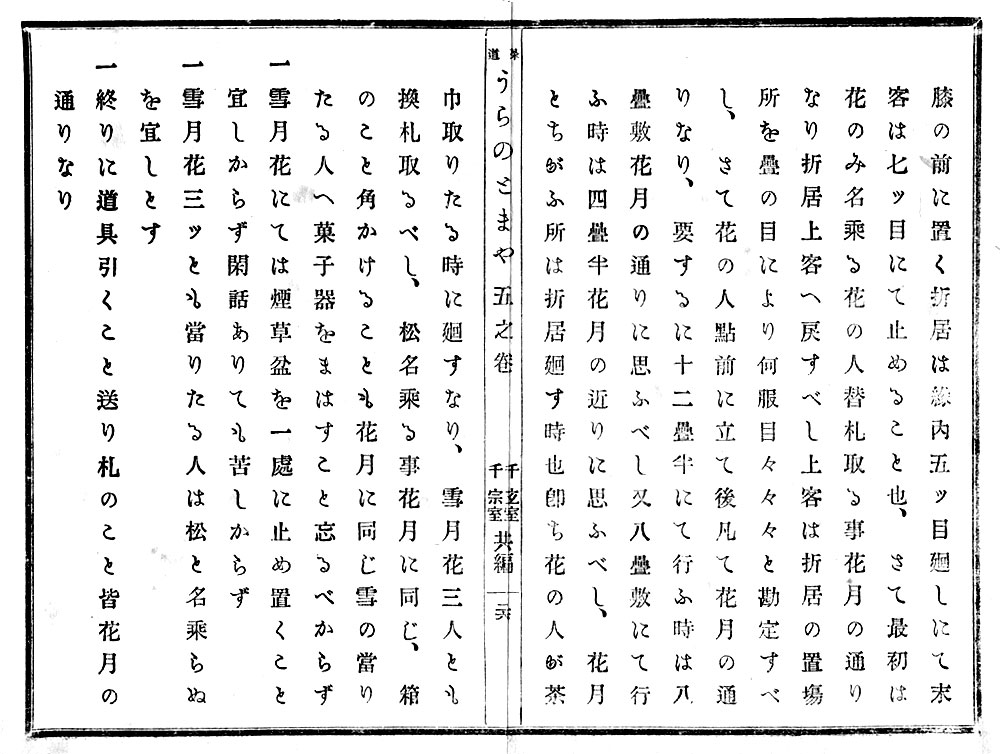 膝の前に置く折居は縁内五ッ目廻しにて末
客は七ッ目にて止めること也、さて最初は
花のみ名乘る花の人替札取る事花月の通り
なり折居上客へ戻すべし上客は折居の置塲
所を疊の目により何服目々々々と勘定すべ
し、さて花の人點前に立て後凡て花月の通
りなり、要するに十二疊半にて行ふ時は八
疊敷花月の通りに思ふべし又八疊敷にて行
ふ時は四疊半花月の近りに思ふべし、花月
とちがふ所は折居廻す時也卽ち花の人が茶
茶道 うらのとまや五之卷 千玄室 千宗室 共編 二六
巾取りたる時に廻すなり、雪月花三人とも
換札取るべし、松名乘る事花月に同じ、箱
のこと角かけることも花月に同じ雪の當り
たる人へ菓子器をまはすこと忘るべからず
一雪月花にては煙草盆を一處に止め置くこと
宜しからず閑話ありても苦しからず
一雪月花三ッとも當りたる人は松と名乘らぬ
を宜しとす
一終りに道具引くこと送り札のこと皆花月の
通りなり